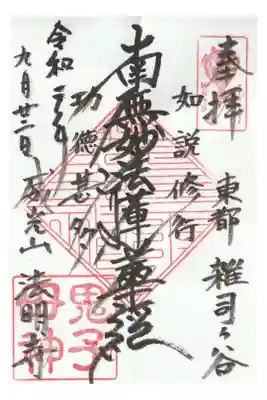 奉拝
東都 雑司ヶ谷
如説修行
南無妙法蓮華経
功徳甚多
令和二年
九月廿二日
威光山 法明寺
鬼子母神